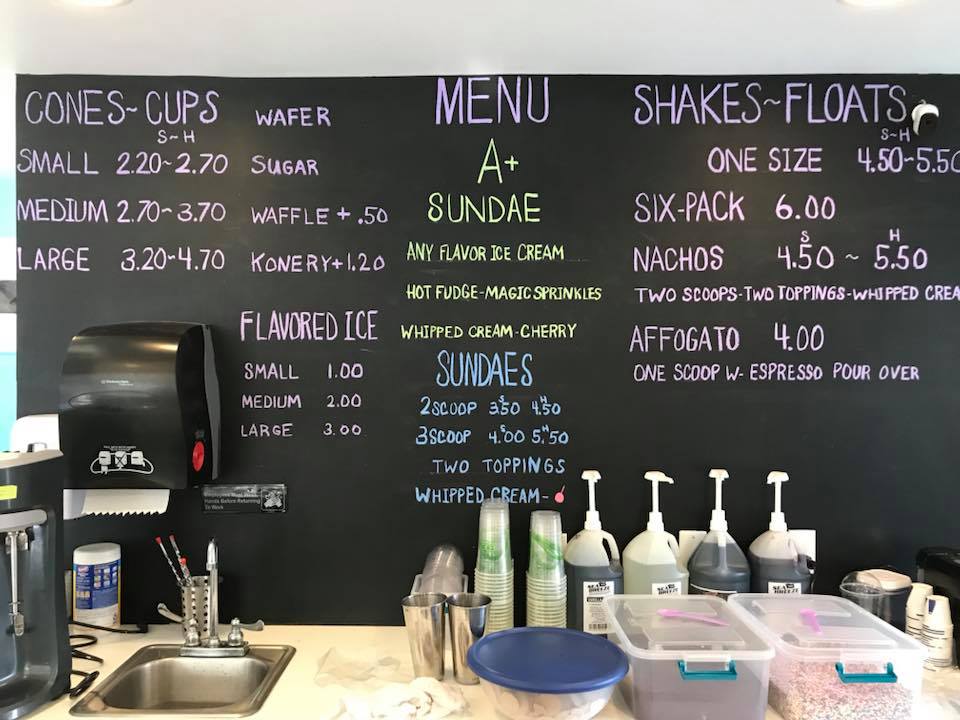 CONES~CUPS
S~H
SMALL 2.20~2.70
MEDIUM 2.70~3.70
LARGE 3.20~4.70
WAFER
SUGAR
WAFFLE + .50
KONERY+1.20
FLAVORED ICE
SMALL 1.00
MEDIUM 2.00
LARGE 3.00
MENU
A+
SUNDAE
ANY FLAVOR ICE CREAM
HOT FUDGE-MAGIC SPRINKLES
WHIPPED CREAM-CHERRY
SUNDAES
S H
2SCOOP 3.50 4.50
S H
3SCOOP 4.00 5.50
TWO TOPPINGS
WHIPPED CREAM-
SHAKES~FLOATS
S~H
ONE SIZE 4.50~5.50
SIX-PACK 6.00
S H
NACHOS 4.50 ~ 5.50
TWO SCOOPS-TWO TOPPINGS-WHIPPED CREA
AFFOGATO 4.00
ONE SCOOP W- ESPRESSO POUR OVER
Employees Must Wash
Hands Before Returning
To Work
SEA
BREEZE
SEA
BREEZE